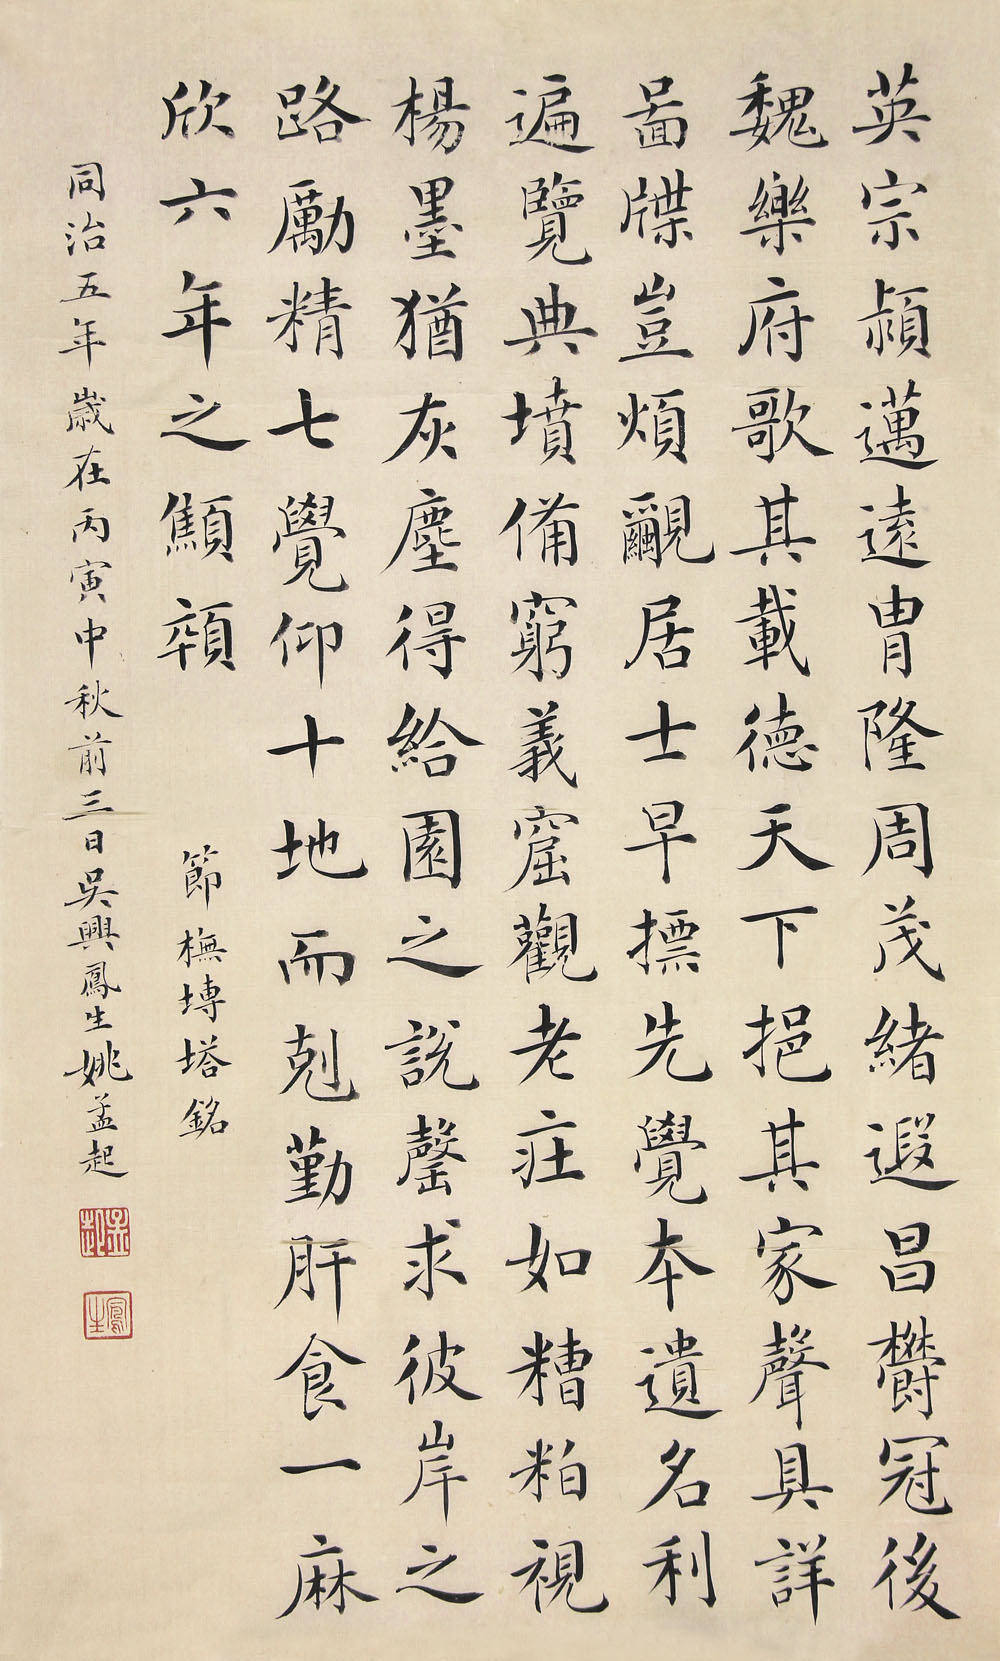 英宗潁邁遠冑隆周茂緒遐昌欝冠後
魏樂府歌其載德天下挹其家聲具詳
啚牒豈煩覼居士早摽先覺本遺名利
遍覽典墳備窮義窟觀老疘如糟粕視
楊墨猶灰塵得給園之說罄求彼岸之
路勵精七覺仰十地而剋勤肝食一麻
欣六年之顦顇
節橅塼塔銘
同治五年歲在丙寅中秋前三日吳興鳳生姚孟起
孟起
鳳生